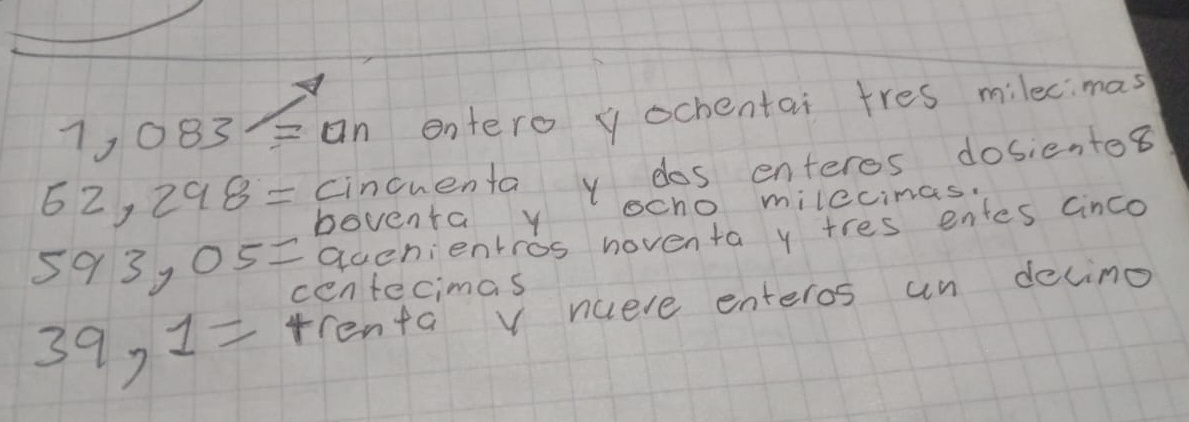 1,083 = un entero y ochentai tres milecimas
52,298 = cincuenta y dos enteros dosientos
boventa y ocho milecimas.
593,05 = quenientros noventa y tres entes cinco
centecimas
39,1 = trenta y nueve enteros un decimo